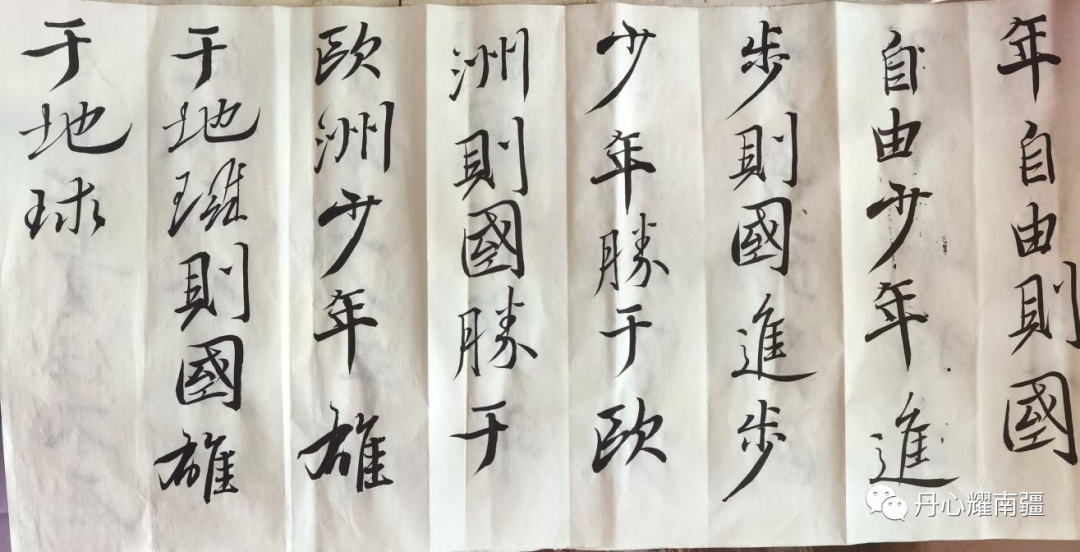 年自由則國
自由少年進
步則國進步
少年勝于歐
洲則國勝于
歐洲少年雄
于地則國雄
于地球
丹心耀南疆